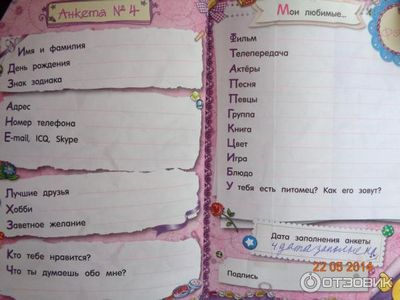 Анкета № 4
Имя и фамилия
День рождения
Знак зодиака
Адрес
Номер телефона
E-mail, ICQ, Skype
Лучшие друзья
Хобби
Заветное желание
Кто тебе нравится?
Что ты думаешь обо мне?
Мои любимые...
Фильм
Телепередача
Актёры
Песня
Певцы
Группа
Книга
Цвет
Игра
Блюдо
У тебя есть питомец? Как его зовут?
Дата заполнения анкеты
Подпись
22 05 2014
ОТЗОВИК